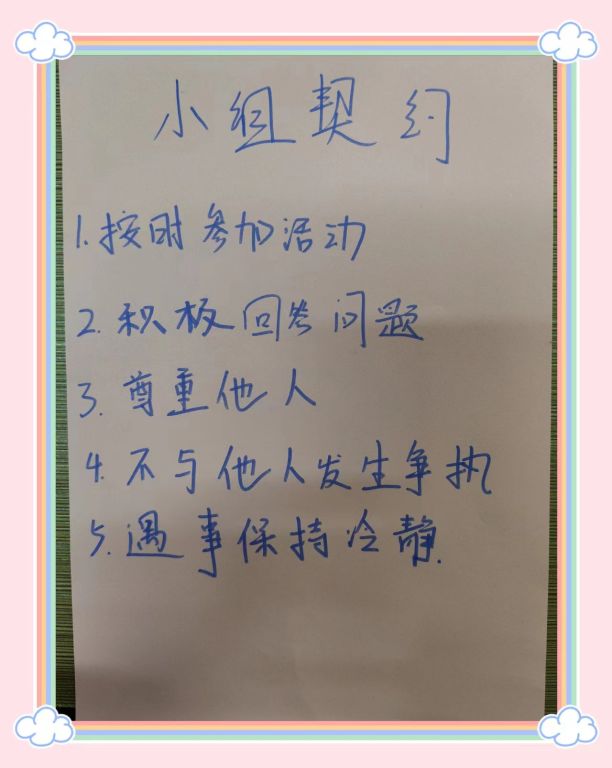 小组契约
1.按时参加活动
2.积极回答问题
3.尊重他人
4.不与他人发生争执
5.遇事保持冷静.